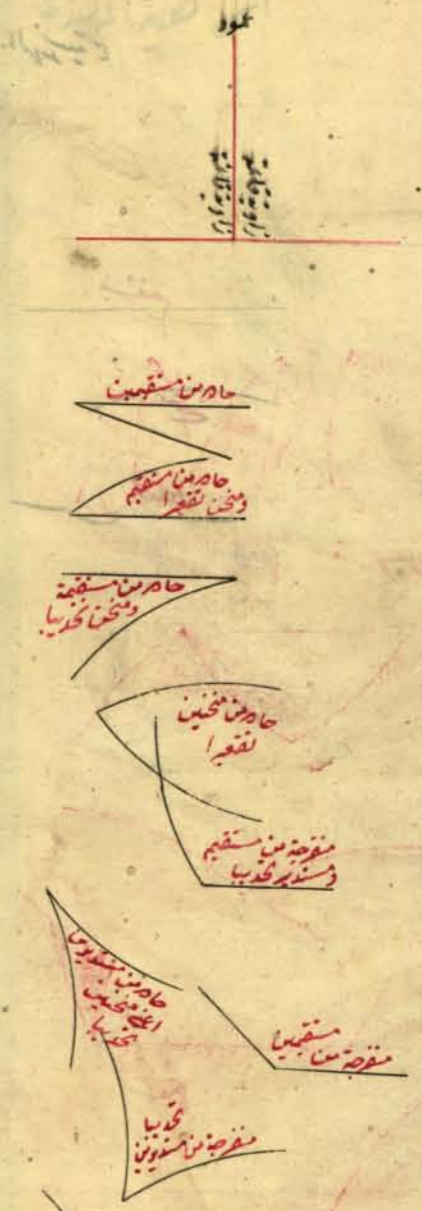 عمود
زاوية قائمة
زاوية قائمة
حاد من مستقيمين
حاد من مستقيم
ومنحن تقعيرا
حاد من مستقيمة
ومنحن تحديبا
حاد من منحنين
تقعيرا
منفرجة من مستقيم
ومستدير تحديبا
حاد من مستديرين
اعني منحنين
تحديبا
منفرجة من
مستقيمين
تحديبا
منفرجة من مستديرين